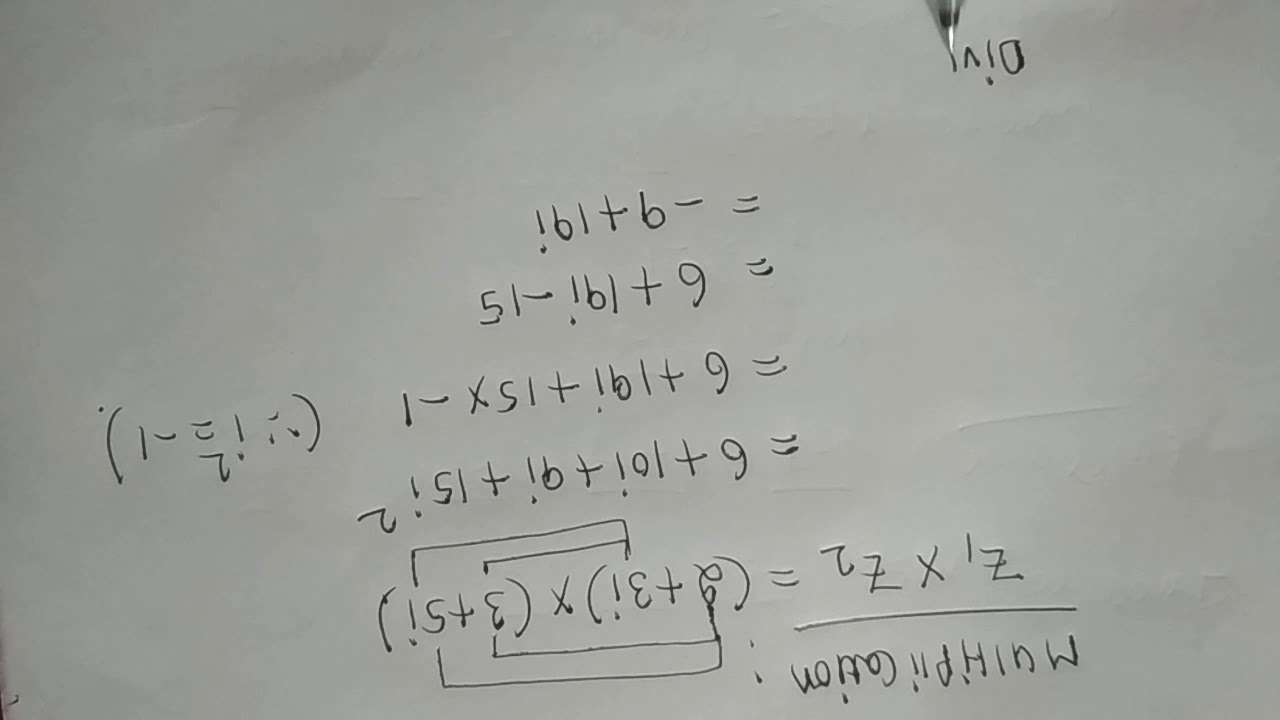 Multiplication :
Z₁ × Z₂ = (2+3i) × (3+5i)
= 6 + 10i + 9i + 15i²
= 6 + 19i + 15 × -1 (∵ i² = -1).
= 6 + 19i - 15
= -9 + 19i
Divi